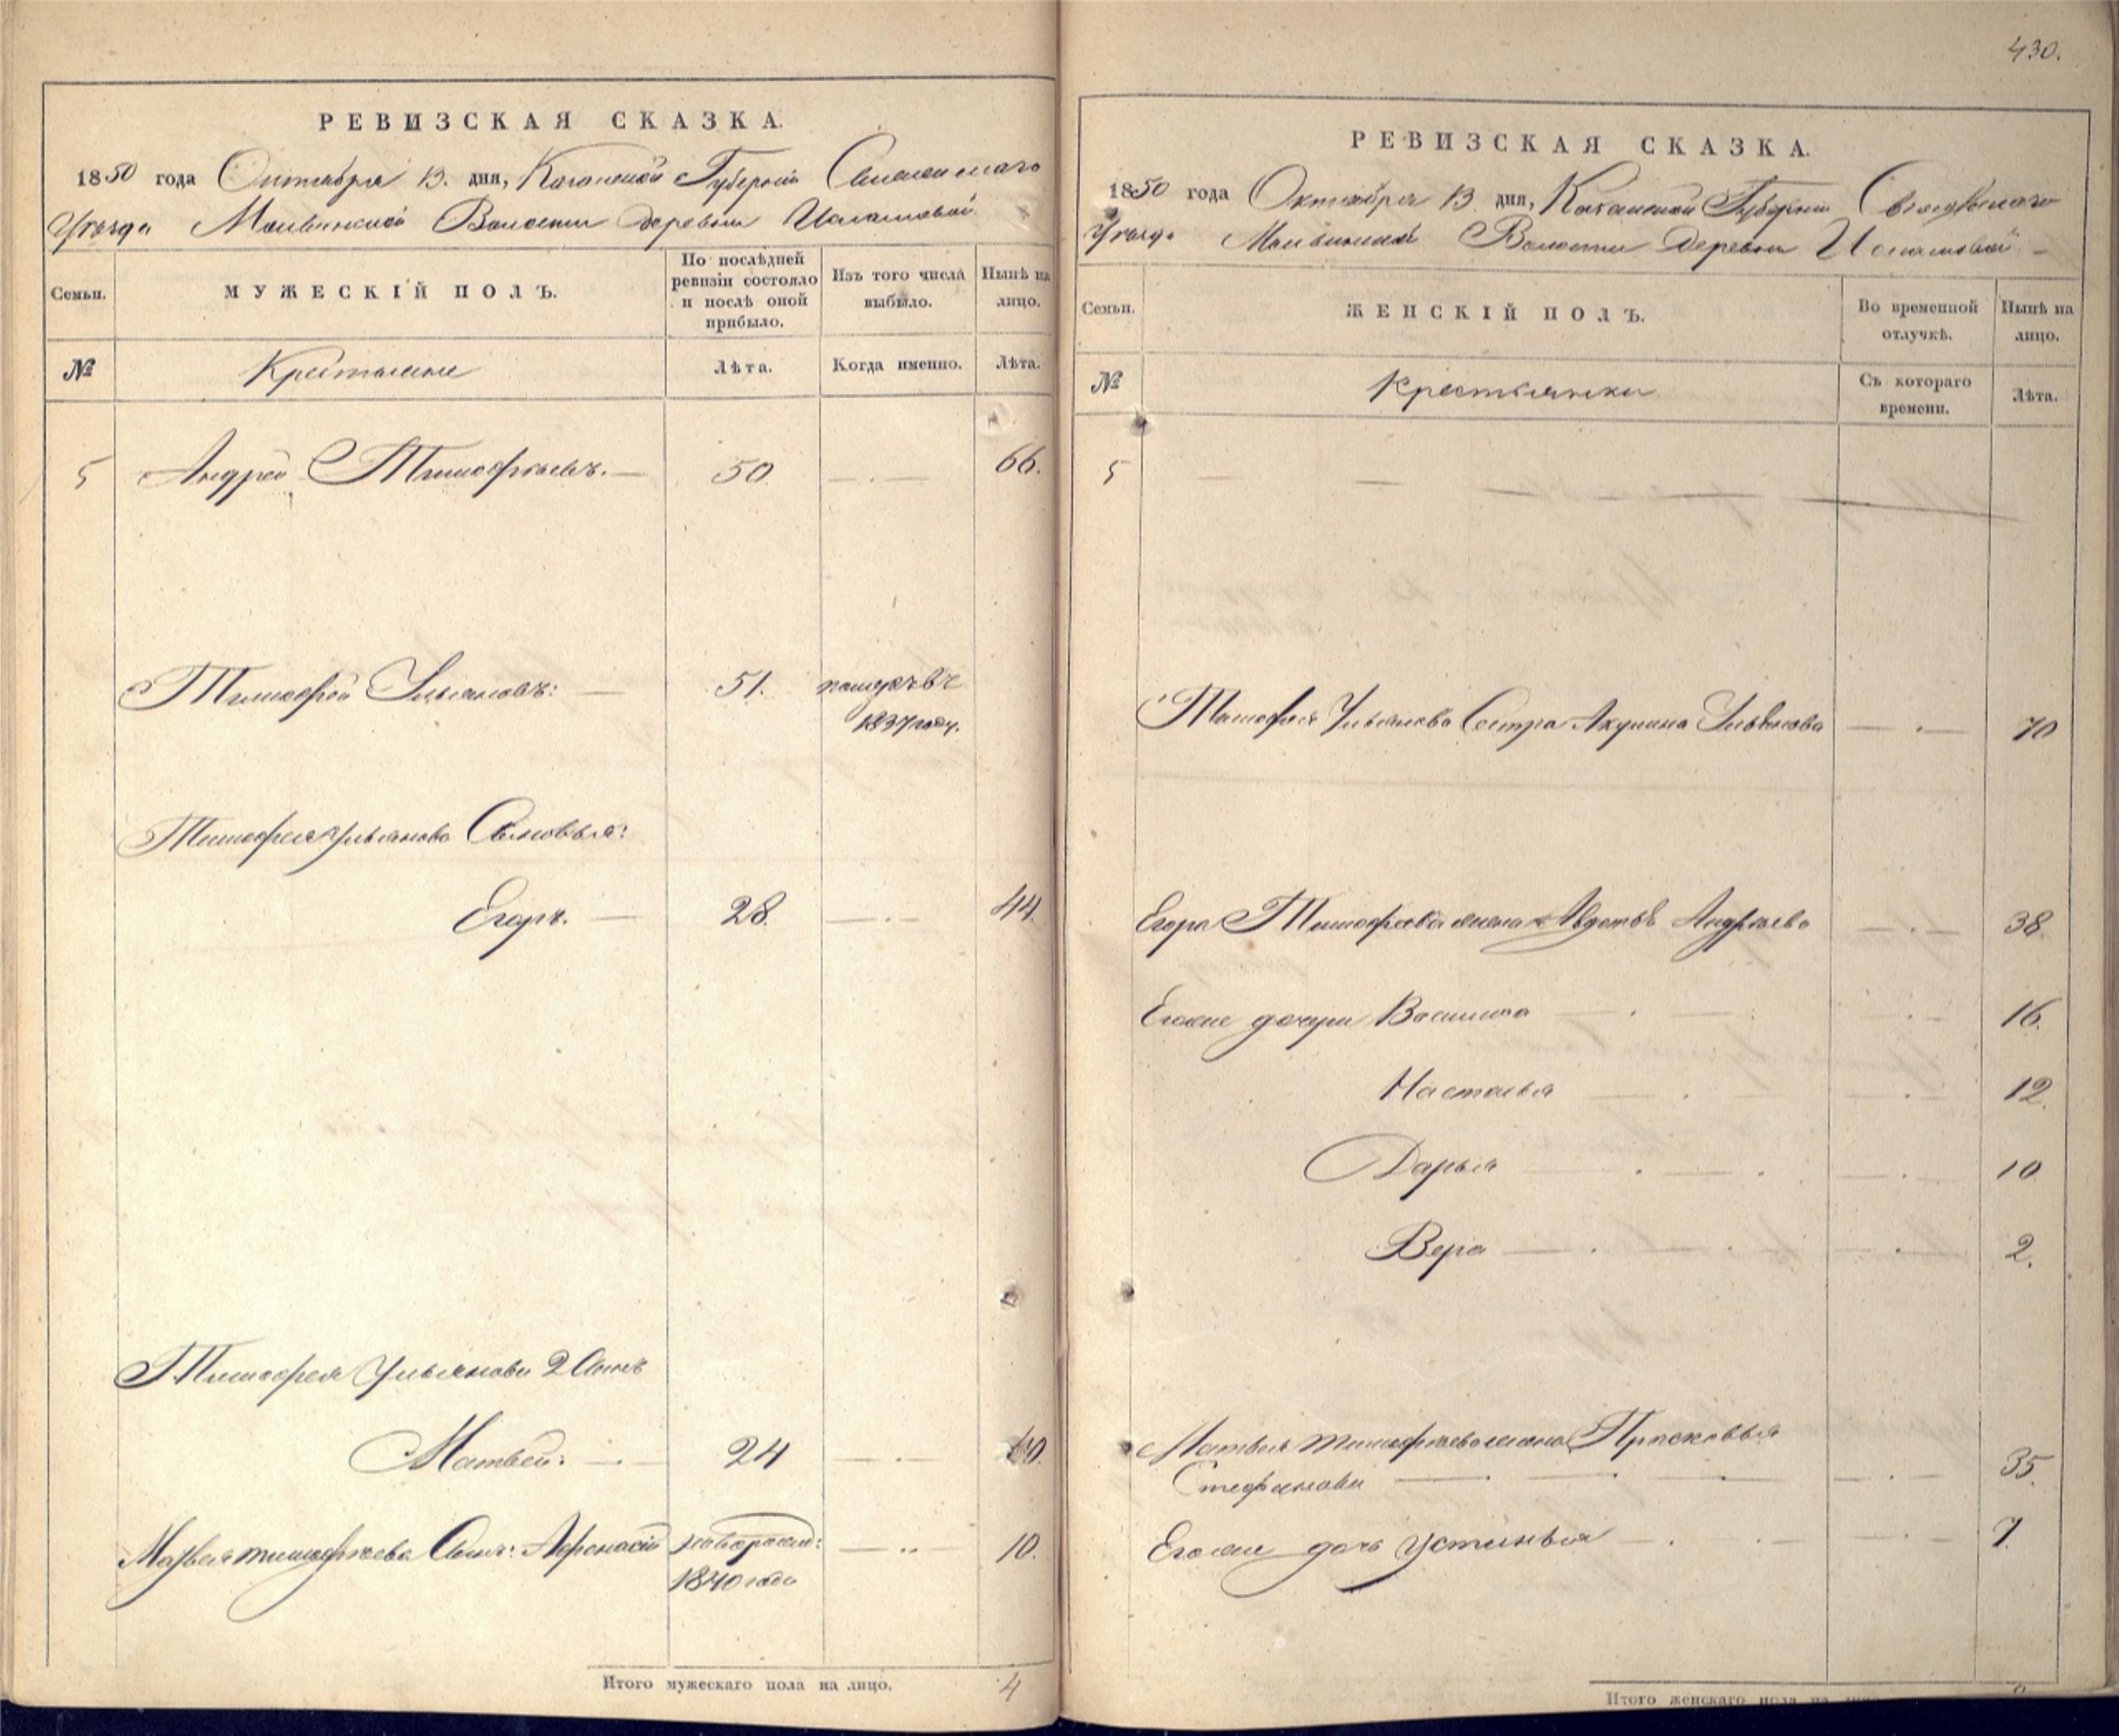 РЕВИЗСКАЯ СКАЗКА.
1850 года Октября 13. дня, Казанской Губерніи
Уѣзда Волости деревни
Семьи.
МУЖЕСКІЙ ПОЛЪ.
По послѣдней
ревизіи состояло
и послѣ оной
прибыло.
Изъ того числа
выбыло.
Нынѣ на
лицо.
№
Крестьяне
Лѣта.
Когда именно.
Лѣта.
5 Андрей Тимофѣевъ. — 50. — . — 66.
Тимофей Ульяновъ: — 51.
1837 году.
Тимофея Ульянова Сыновья:
Егоръ. — 28. — . — 44.
Тимофея Ульянова 2 Сынъ
Матвей: — . — 24 — . —
Матвея Тимофѣева Сынъ: Афонасій — .. — 10.
1840 года
Итого мужескаго пола на лицо. 4
430.
РЕВИЗСКАЯ СКАЗКА.
1850 года Октября 13 дня, Казанской Губерніи Свіяжскаго
Уѣзда Волости Деревни
Семьи.
ЖЕНСКІЙ ПОЛЪ.
Во временной
отлучкѣ.
Нынѣ на
лицо.
№
Крестьянки
Съ котораго
времени.
Лѣта.
5 — — —
Тимофея Ульянова Сестра Акулина Ульянова — . — 70
Егора Тимофеева жена Андрѣева — . — 38.
Егоже дочери Василиса — . — . — 16.
Настасья — . — — . — 12.
Дарья — . — . — . — 10.
Вера — . — . — . — 2.
Матвея Тимофѣева жена Прасковья
Стефанова — . — — — . — 35.
Егоже дочь Устинья — . — . — — . — 7.
Итого женскаго пола на